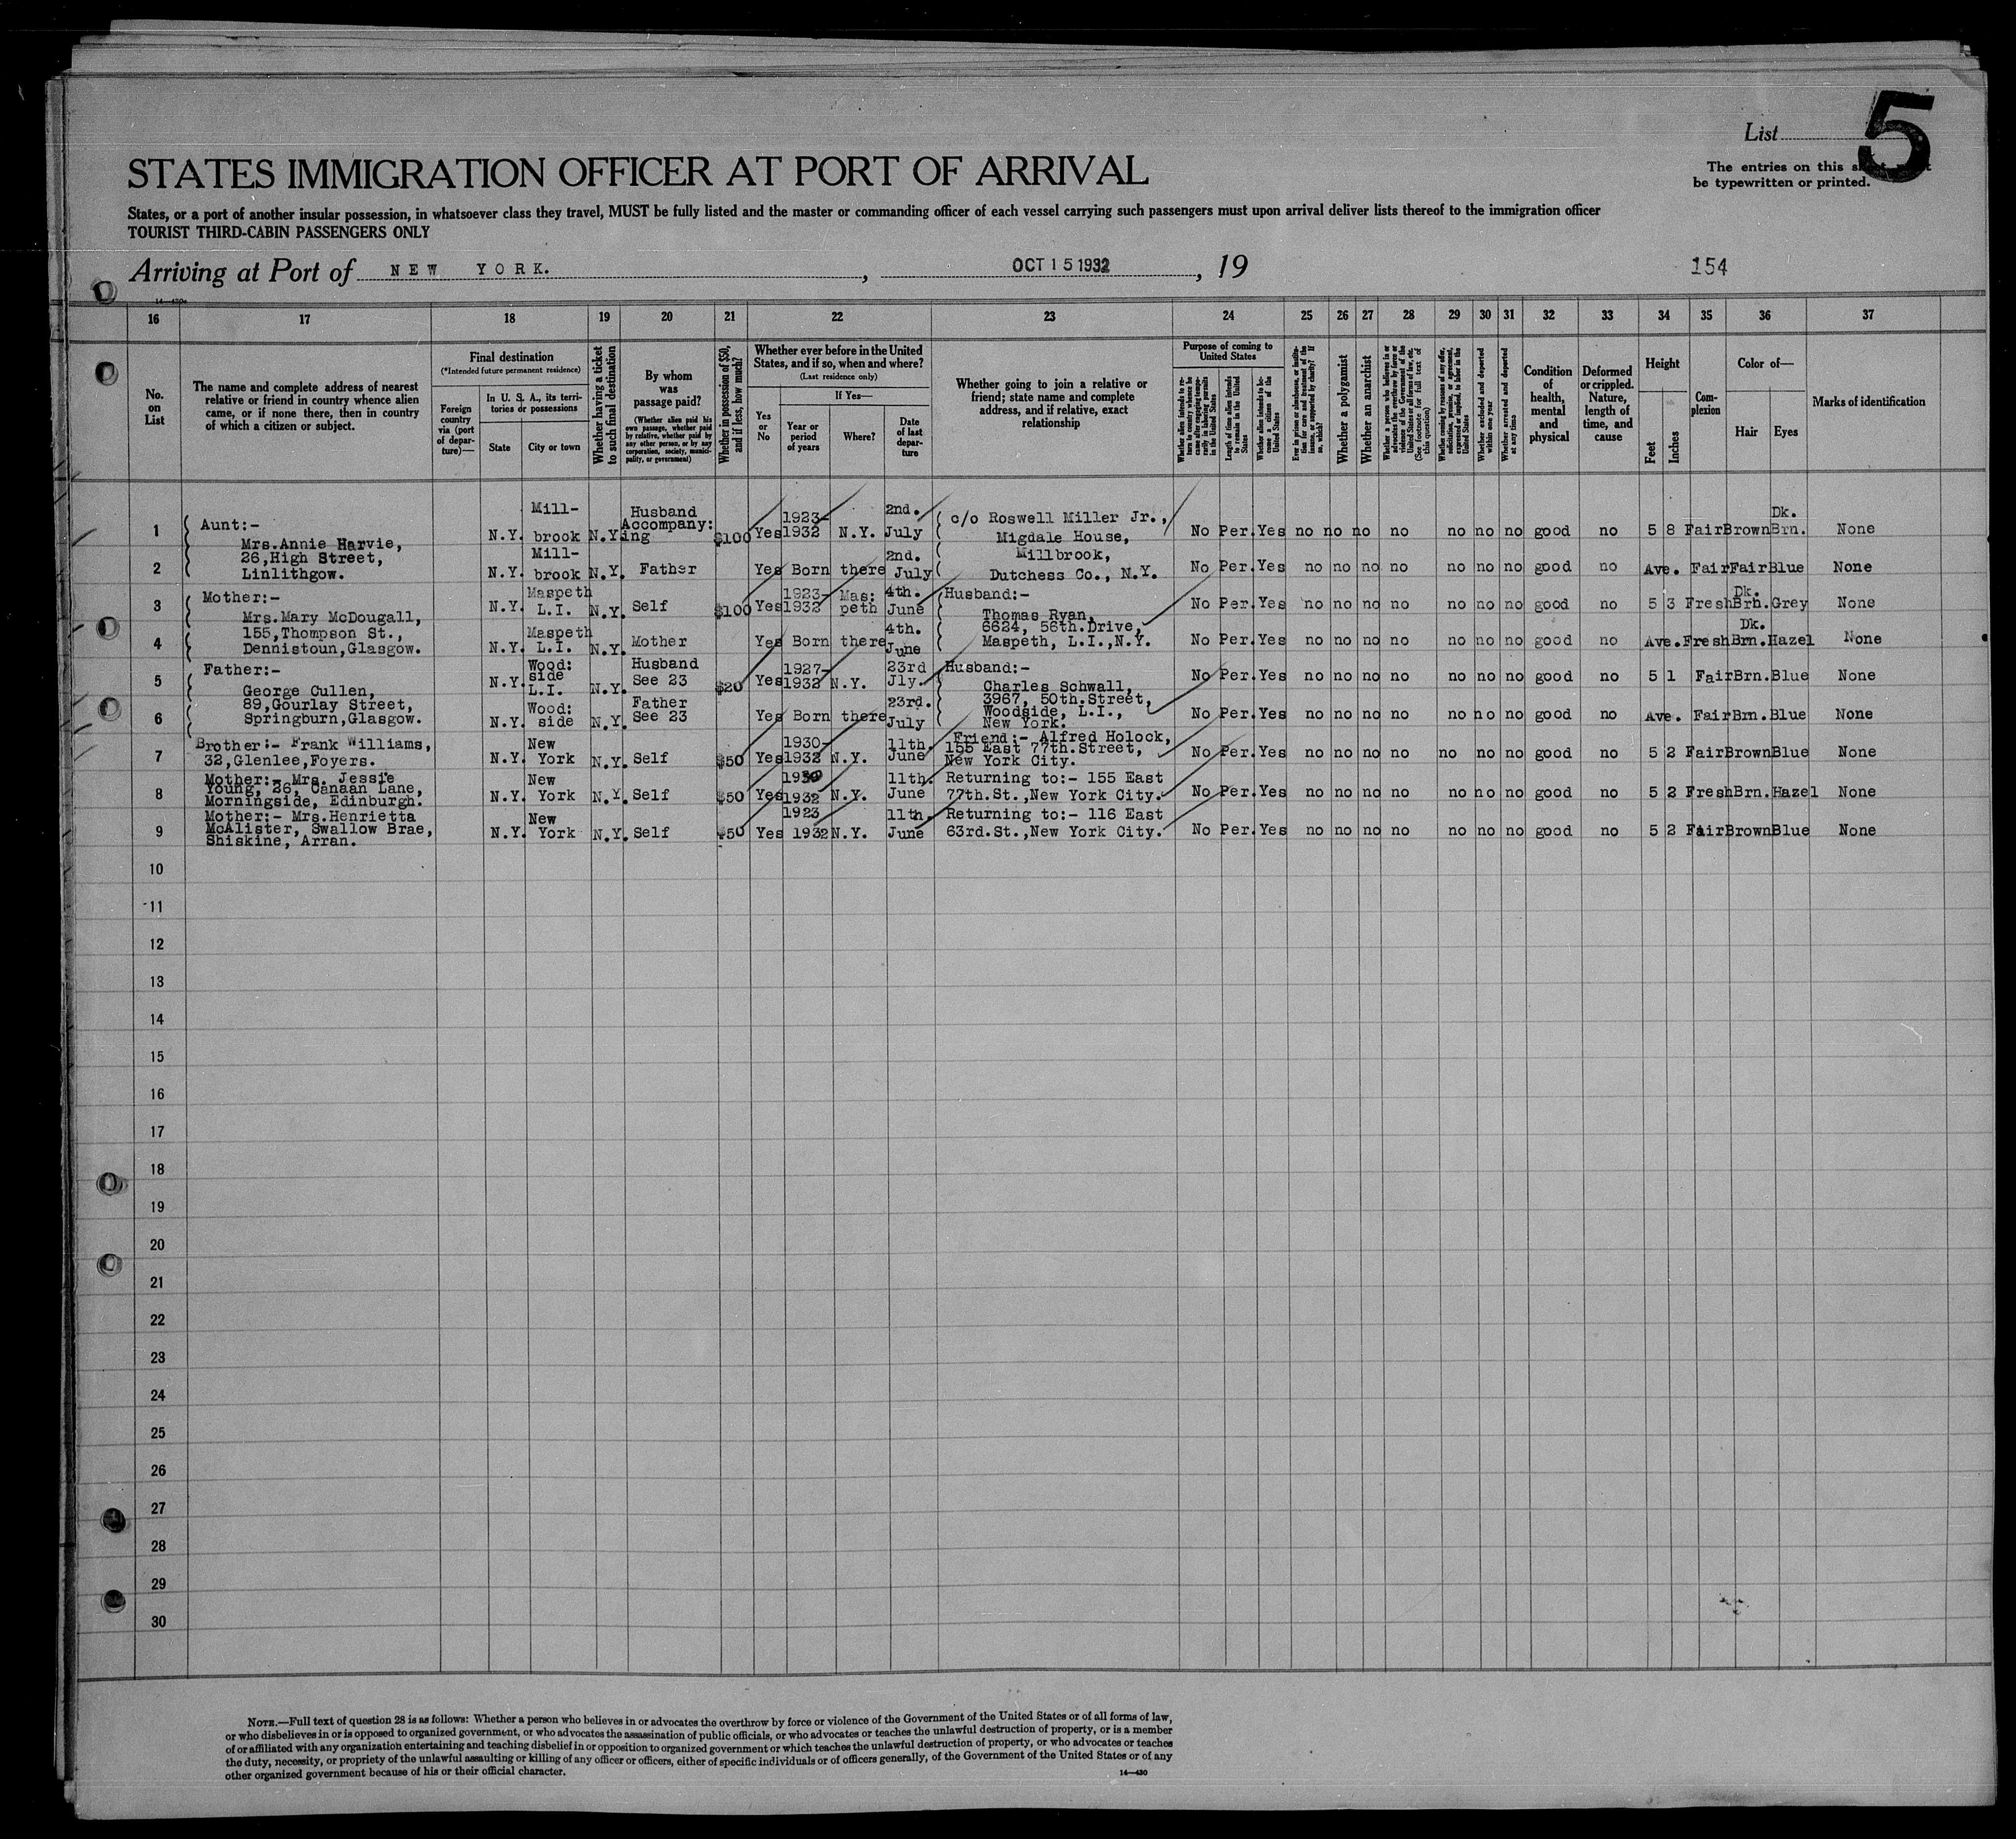 List 5
STATES IMMIGRATION OFFICER AT PORT OF ARRIVAL
The entries on this
be typewritten or printed.
States, or a port of another insular possession, in whatsoever class they travel, MUST be fully listed and the master or commanding officer of each vessel carrying such passengers must upon arrival deliver lists thereof to the immigration officer
TOURIST THIRD-CABIN PASSENGERS ONLY
Arriving at Port of NEW YORK. , OCT 15 1932 , 19 154
16 17 18 19 20 21 22 23 24 25 26 27 28 29 30 31 32 33 34 35 36 37
No. on List
The name and complete address of nearest relative or friend in country whence alien came, or if none there, then in country of which a citizen or subject.
Final destination
(*Intended future permanent residence)
Foreign country via (port of departure)—
In U. S. A., its territories or possessions
State
City or town
Whether having a ticket to such final destination
By whom was passage paid?
(Whether alien paid his own passage, whether paid by relative, whether paid by any other person, or by any corporation, society, municipality, or government)
Whether in possession of $50, and if less, how much?
Whether ever before in the United States, and if so, when and where?
(Last residence only)
Yes or No
If Yes—
Year or period of years
Where?
Date of last departure
Whether going to join a relative or friend; state name and complete address, and if relative, exact relationship
Purpose of coming to United States
Length of time alien intends to remain in the United States
Whether alien intends to become a citizen of the United States
Whether a polygamist
Whether an anarchist
Whether excluded and deported within one year
Whether arrested and deported at any time
Condition of health, mental and physical
Deformed or crippled. Nature, length of time, and cause
Height
Feet
Inches
Complexion
Color of—
Hair
Eyes
Marks of identification
1 Aunt:- Mrs.Annie Harvie, N.Y. Mill-brook N.Y. Husband Accompany:ing $100 Yes 1923-1932 N.Y. 2nd. July c/o Roswell Miller Jr., Migdale House, No Per. Yes no no no no no no no good no 5 8 Fair Brown Dk. Brn. None
2 26,High Street, Linlithgow. N.Y. Mill-brook N.Y. Father Yes Born there 2nd. July Millbrook, Dutchess Co., N.Y. No Per. Yes no no no no no no no good no Ave. Fair Fair Blue None
3 Mother:- Mrs.Mary McDougall, N.Y. Maspeth L.I. N.Y. Self $100 Yes 1923-1932 Mas:peth 4th. June Husband:- Thomas Ryan, No Per. Yes no no no no no no no good no 5 3 Fresh Dk. Brn. Grey None
4 155,Thompson St., Dennistoun,Glasgow. N.Y. Maspeth L.I. N.Y. Mother Yes Born there 4th. June 6624, 56th.Drive, Maspeth, L.I.,N.Y. No Per. Yes no no no no no no no good no Ave. Fresh Dk. Brn. Hazel None
5 Father:- George Cullen, N.Y. Wood:side L.I. N.Y. Husband See 23 $20 Yes 1927-1932 N.Y. 23rd Jly. Husband:- Charles Schwall, No Per. Yes no no no no no no no good no 5 1 Fair Brn. Blue None
6 89,Gourlay Street, Springburn,Glasgow. N.Y. Wood:side N.Y. Father See 23 Yes Born there 23rd. July 3967, 50th.Street, Woodside, L.I., New York. No Per. Yes no no no no no no no good no Ave. Fair Brn. Blue None
7 Brother:- Frank Williams, 32,Glenlee,Foyers. N.Y. New York N.Y. Self $50 Yes 1930-1932 N.Y. 11th. June Friend:- Alfred Holock, 155 East 77th.Street, New York City. No Per. Yes no no no no no no no good no 5 2 Fair Brown Blue None
8 Mother:- Mrs. Jessie Young, 26, Canaan Lane, Morningside, Edinburgh. N.Y. New York N.Y. Self $50 Yes 1930 1932 N.Y. 11th. June Returning to:- 155 East 77th.St.,New York City. No Per. Yes no no no no no no no good no 5 2 Fresh Brn. Hazel None
9 Mother:- Mrs.Henrietta McAlister, Swallow Brae, Shiskine, Arran. N.Y. New York N.Y. Self $50 Yes 1923 1932 N.Y. 11th. June Returning to:- 116 East 63rd.St.,New York City. No Per. Yes no no no no no no no good no 5 2 Fair Brown Blue None
10
11
12
13
14
15
16
17
18
19
20
21
22
23
24
25
26
27
28
29
30
NOTE.—Full text of question 28 is as follows: Whether a person who believes in or advocates the overthrow by force or violence of the Government of the United States or of all forms of law,
or who disbelieves in or is opposed to organized government, or who advocates the assassination of public officials, or who advocates or teaches the unlawful destruction of property, or is a member
of or affiliated with any organization entertaining and teaching disbelief in or opposition to organized government or which teaches the unlawful destruction of property, or who advocates or teaches
the duty, necessity, or propriety of the unlawful assaulting or killing of any officer or officers, either of specific individuals or of officers generally, of the Government of the United States or of any
other organized government because of his or their official character.
14—430